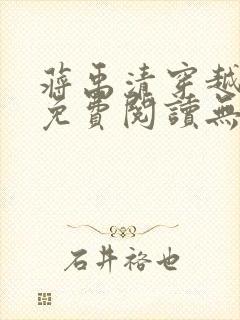 蔣禹清穿越
免費閱讀無
石井裕也